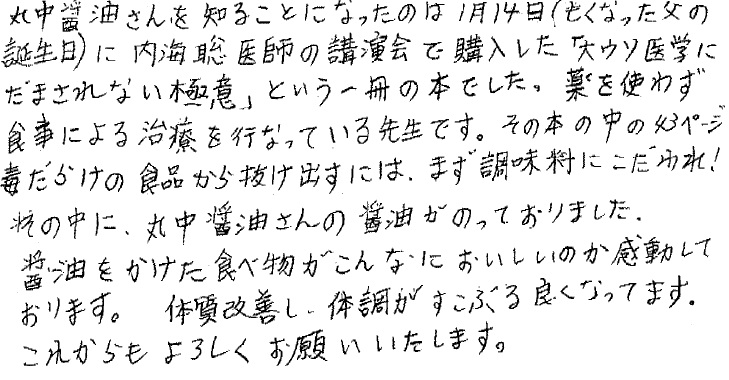 丸中醤油さんを知ることになったのは1月14日(亡くなった父の
誕生日)に内海聡医師の講演会で購入した「大ウソ医学に
だまされない極意」という一冊の本でした。薬を使わず
食事による治療を行なっている先生です。その本の中の43ページ
毒だらけの食品から抜け出すには、まず調味料にこだわれ!
その中に、丸中醤油さんの醤油がのっておりました。
醤油をかけた食べ物がこんなにおいしいのか感動して
おります。 体質改善し、体調がすこぶる良くなってます。
これからもよろしくお願いいたします。